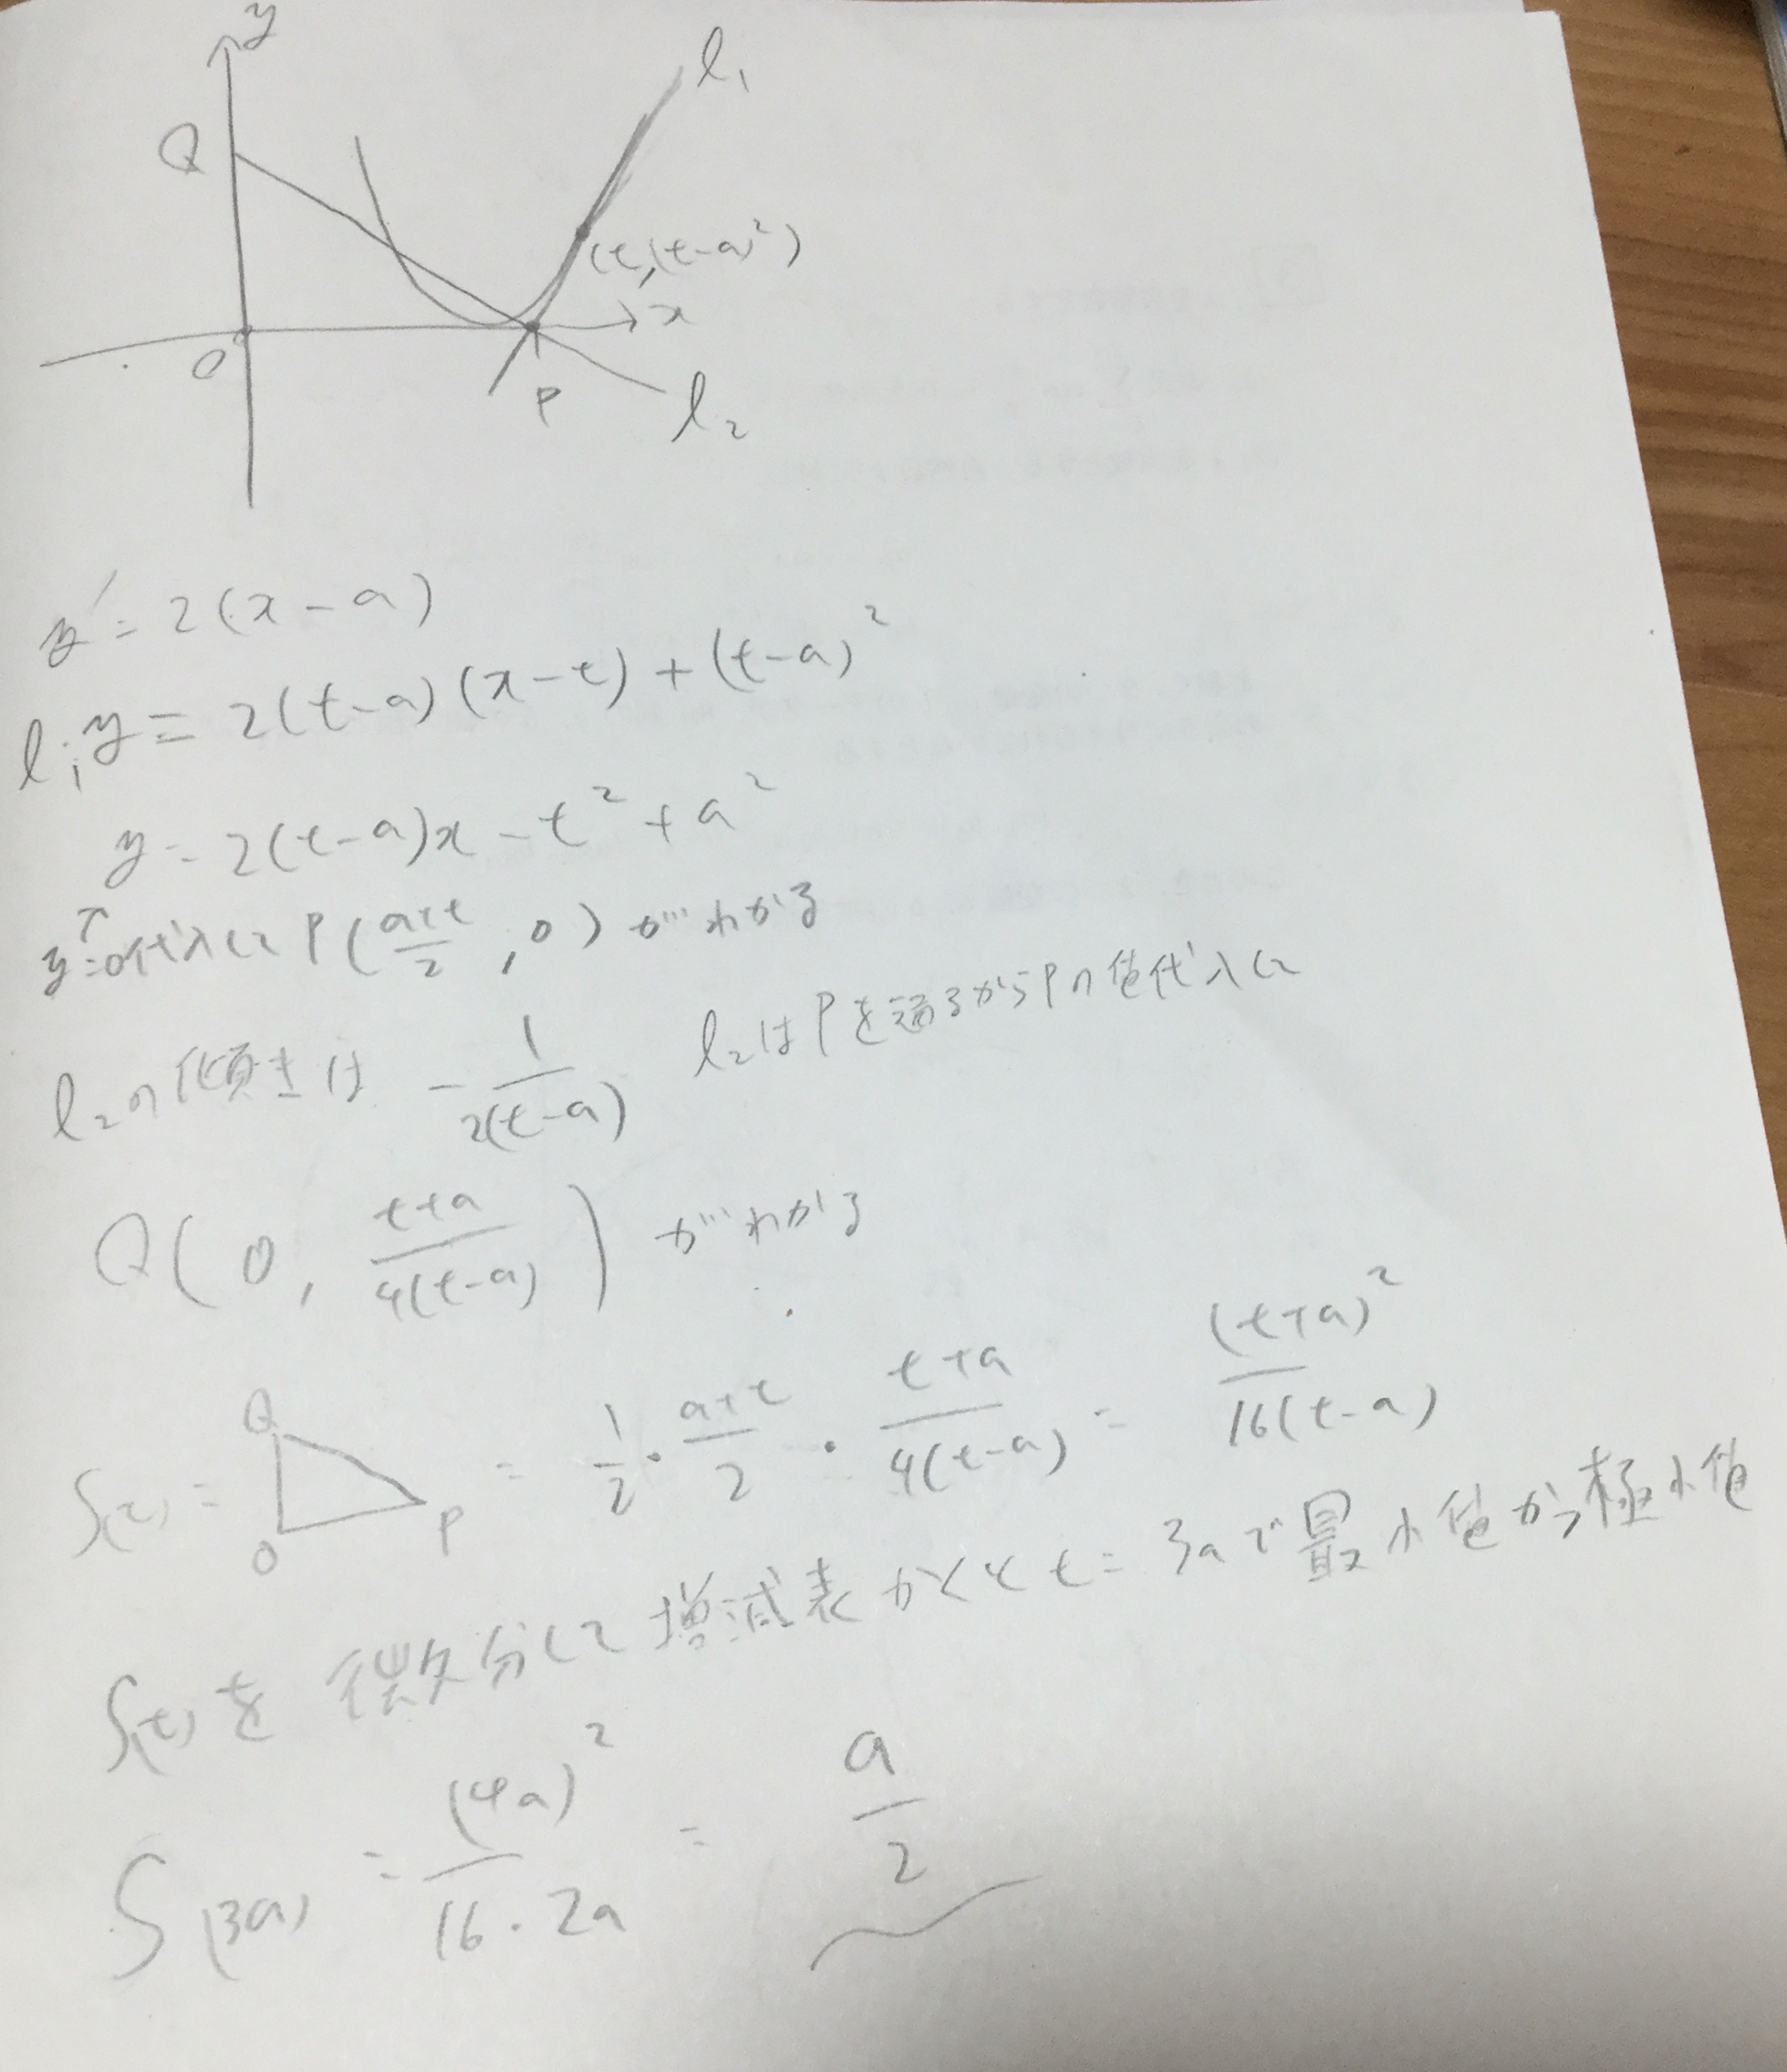 y
l₁
Q
(t,(t-a)²)
x
O
P
l₂
y' = 2(x-a)
l₁ y = 2(t-a)(x-t)+(t-a)²
y = 2(t-a)x - t² + a²
↑
y=0代入して P(a+t/2, 0) がわかる
l₂の傾きは -1/2(t-a) l₂はPを通るからPの値代入して
Q(0, t+a/4(t-a)) がわかる
S(t) = Q O P = 1/2・a+t/2・t+a/4(t-a) = (t+a)²/16(t-a)
S(t)を微分して増減表かくと t=3aで最小値かつ極小値
S(3a) = (4a)²/16・2a = a/2